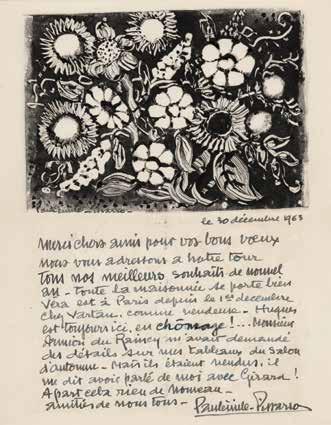 Paulémile-Pissarro-
le 30 décembre 1963
Merci chers amis pour vos bons voeux
nous vous adressons a notre tour
tous nos meilleurs souhaits de nouvel
an - toute la maisonnée se porte bien
Véra est à Paris depuis le 1er decembre
chez Vartan, comme vendeuse - Hugues
est toujours ici, en chômage!... Monsieur
du Raincy m'avait demandé
des détails sur mes tableaux du Salon
d'automne - Mais ils étaient vendus, il
me dit avoir parlé de moi avec Girard!
A part cela rien de nouveau -
amitiés de nous tous - Paulémile-Pissarro